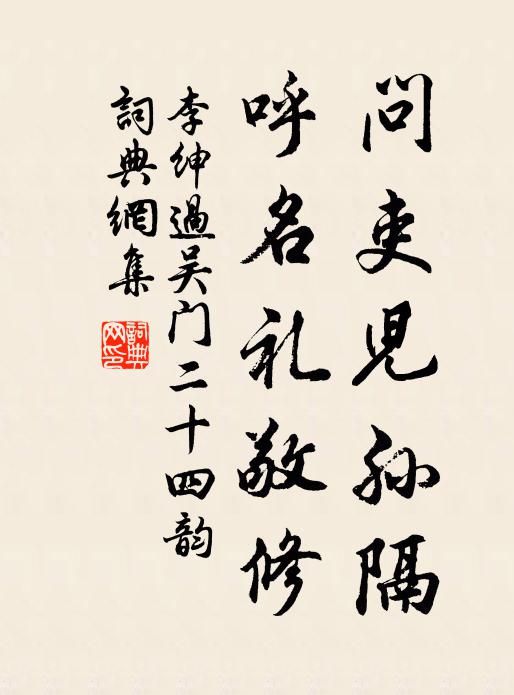 问吏児孙隔
呼名礼敬修
李绅過吴门二十四韵
詞典網集
詞典網印